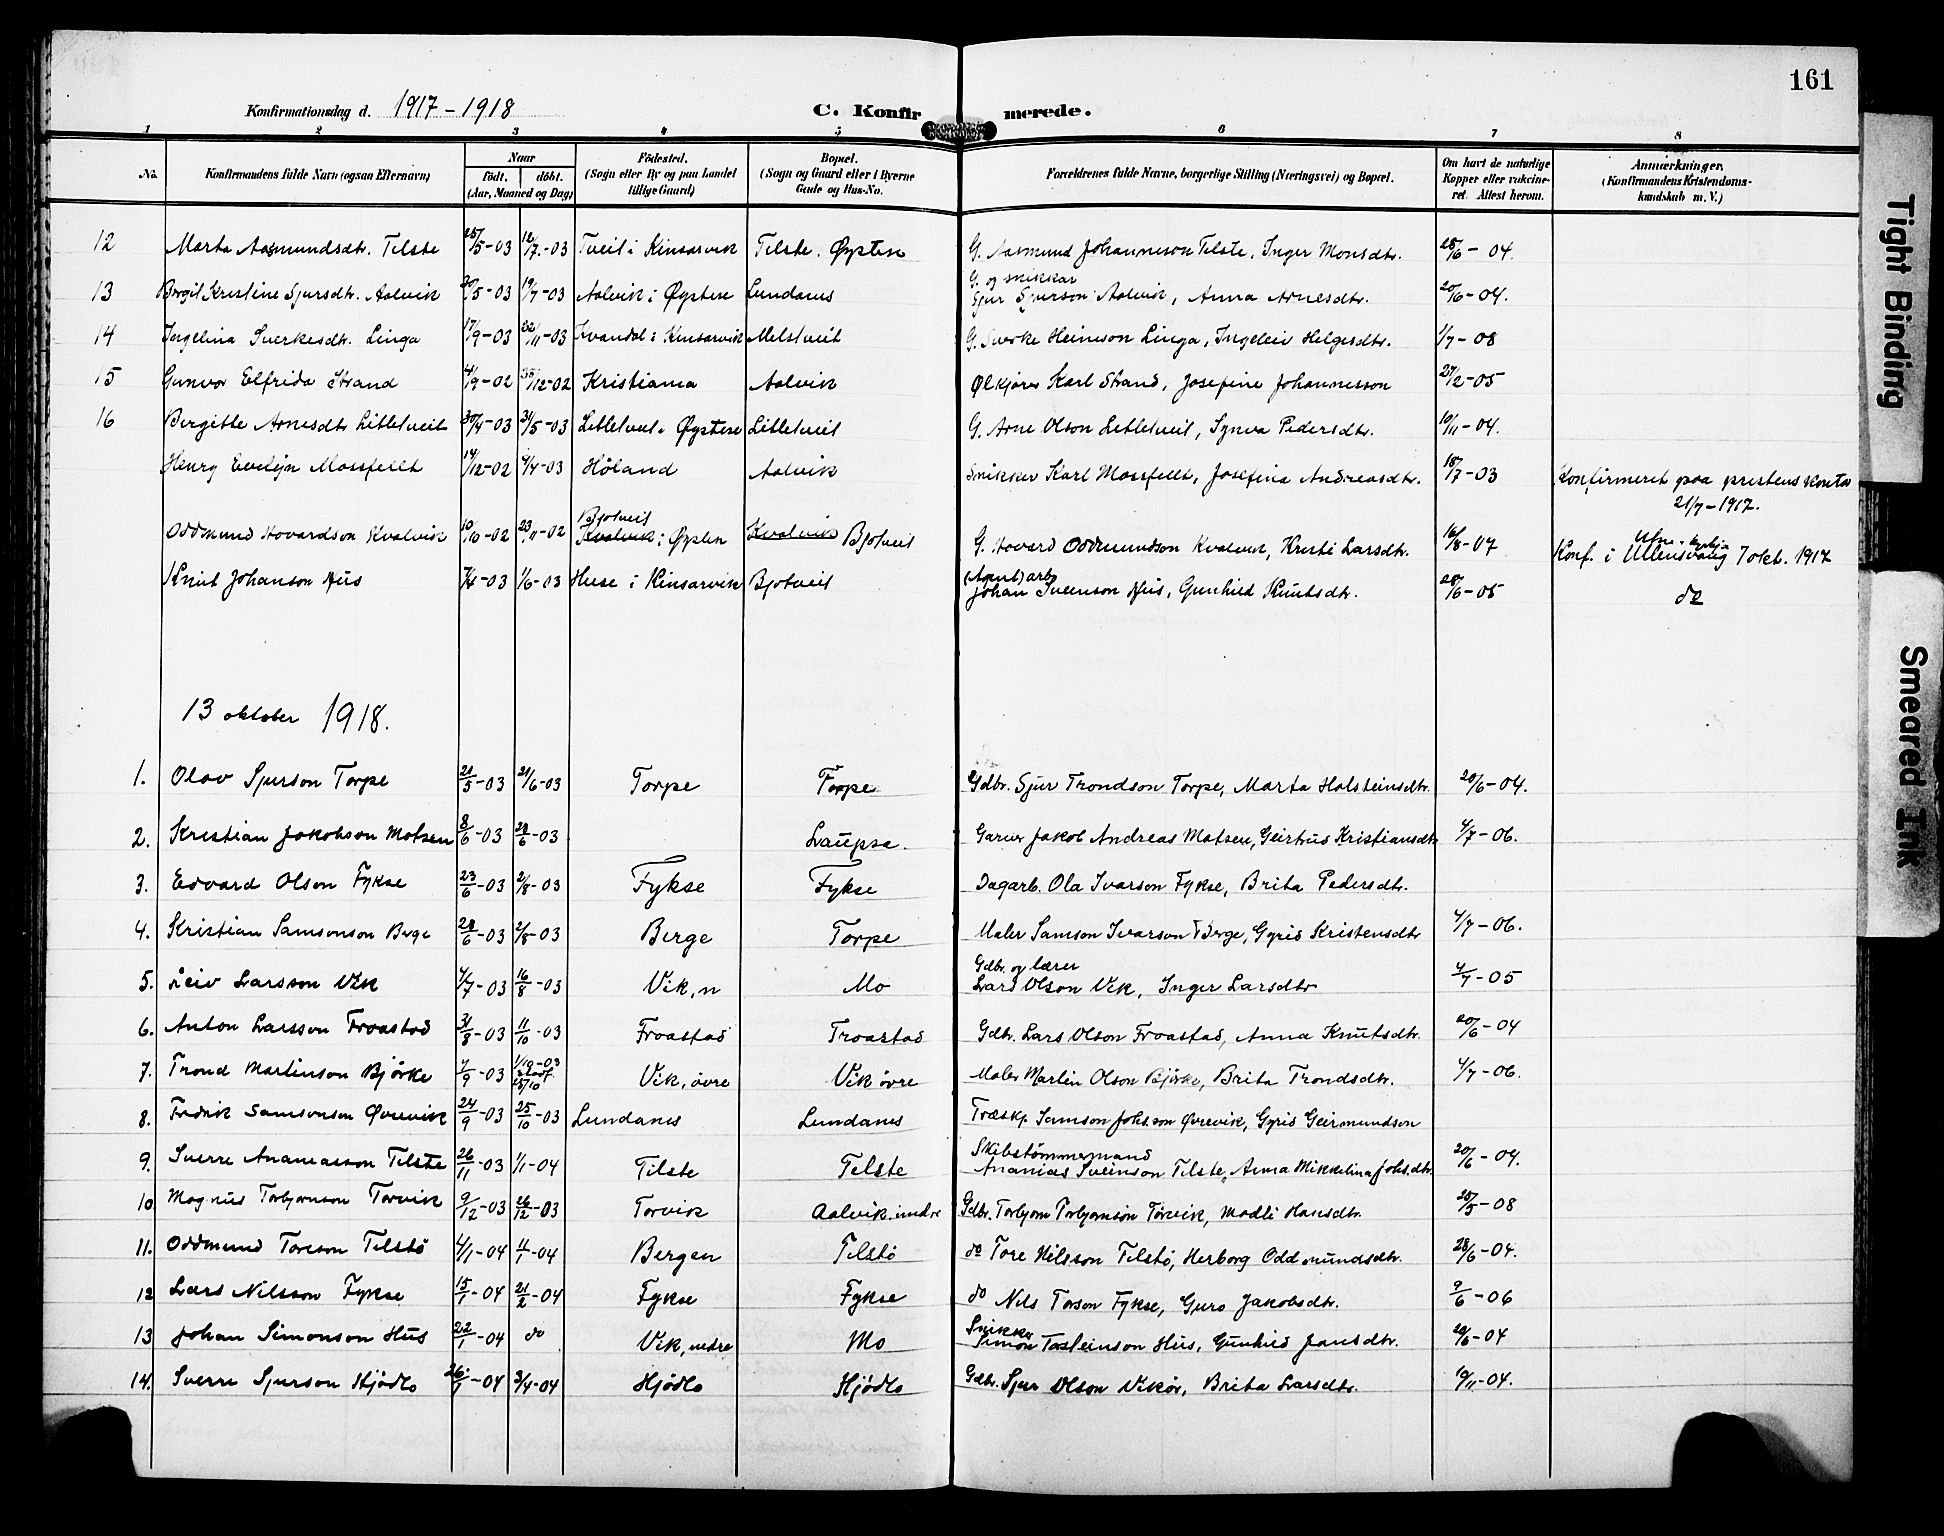 161
Konfirmationsdag d. 1917-1918 C. Konfirmerede.
1 2 3 4 5 6 7 8
No. Konfirmandens fulde Navn (ogsaa Efternavn) Naar födt. döbt. (Aar, Maaned og Dag) Födested. (Sogn eller By og paa Landet tillige Gaard) Bopæl. (Sogn og Gaard eller i Byerne Gade og Hus-No. Forældrenes fulde Navne, borgerlige Stilling (Næringsvei) og Bopæl. Om havt de naturlige Kopper eller vakcineret. Attest herom. Anmærkninger. (Konfirmandens Kristendomskundskab m. V.)
12 Marta Aasmundsdtr. Tilste 25/5-03 12/7-03 Tveit i Kinsarvik Tilste. Øystese G. Aasmund Johanneson Tilste, Inger Monsdtr. 28/6-04.
13 Bergit Kristine Sjursdtr. Aalvik 30/5-03 19/7-03 Aalvik i Øystese Lundanes G. og snikkar Sjur Sjurson Aalvik, Anna Arnesdtr. 20/6-04.
14 Ingelina Sverkesdtr. Linga 17/9-03 22/11-03 Kvandal i Kinsarvik Melstveit G. Sverke Heineson Linga, Ingeleiv Helgesdtr. 1/7-08
15 Gunvor Elfrida Strand 4/9-02 /12-02 Kristiania Aalvik Ølkjører Karl Strand, Josefine Johannesson 27/2-05
16 Bergitte Arnesdtr Litletveit 30/4-03 31/5-03 Litletveit. Øystese Litletveit G. Arne Olson Litletveit, Synva Pedersdtr. 10/11-04.
Henry Evelyn Mossfellt 14/12-02 /4-03 Höland Aalvik Snikker Karl Mossfellt, Josefina Andreasdtr. 18/7-03 Konfirmeret paa prestens kontor 21/7-1917.
Oddmund Hovardson Kvalvik 10/10-02 23/11-02 Bjotveit Kvalvik i Øysten Kvalvik Bjotveit G. Hovard Oddmundson Kvalvik, Kristi Larsdtr. 16/8-07 Konf. i Ullensvang Utne-kyrkja 7 okt. 1917
Knut Johanson Hus 7/4-03 1/6-03 Huse i Kinsarvik Bjotveit arb. Johan Sveinson Hus, Gunhild Knutsdtr. 28/6-05 do
13 oktober 1918.
1. Olav Sjurson Torpe 21/5-03 21/6-03 Torpe Torpe Gdbr. Sjur Trondson Torpe, Marta Halsteinsdtr. 20/6-04.
2. Kristian Jakobson Matsen 8/6-03 28/6-03 Laupsa. Garver Jakob Andreas Matsen, Geirtrus Kristiansdtr 4/7-06.
3. Edvard Olson Fykse 23/6-03 2/8-03 Fykse Fykse Dagarb. Ola Ivarson Fykse, Brita Pedersdtr.
4. Kristian Samsonson Berge 28/6-03 2/8-03 Berge Torpe Maler Samson Ivarson Berge, Gyrid Kristensdtr 4/7-06.
5. Leiv Larsson Vik 4/7-03 16/8-03 Vik, n Mo Gdbr. og lærer Lars Olson Vik, Inger Larsdtr 4/7-05
6. Anton Larsson Froastad 31/8-03 11/10-03 Froastad Froastad Gdbr. Lars Olson Froastad, Anna Knutsdtr. 20/6-04
7. Trond Martinson Bjørke 4/9-03 1/10-03 stadf 25/10 Vik, övre Vik övre Maler Martin Olson Bjørke, Brita Trondsdtr. 4/7-06.
8. Fredrik Samsonson Øvrevik 24/9-03 25/10-03 Lundanes Lundanes Træskp. Samson Johs.son Øvrevik, Gyrid Geirmundson
9. Sverre Ananiasson Tilste 26/11-03 1/1-04 Tilste Tilste Skibstømmermand Ananias Sveinson Tilste, Anna Mikkelina Johs.dtr. 20/6-04.
10 Magnus Torbjørnson Torvik 9/12-03 26/12-03 Torvik Aalvik, indre Gdbr. Torbjørn Torbjørnson Torvik, Madli Hansdtr. 25/5-08
11. Oddmund Toreson Tilstö 4/1-04 /1-04 Bergen Tilstö do Tore Nilsson Tilstö, Herborg Oddmundsdtr. 28/6-04.
12 Lars Nilsson Fykse 15/1-04 21/2-04 Fykse Fykse do Nils Torson Fykse, Guro Jakobsdtr. 9/6-06
13 Johan Simonson Hus 22/1-04 do Vik, nedre Mo Snikker Simon Torsteinson Hus, Gunhild Jansdtr. 20/6-04
14. Sverre Sjurson Hjødlo 26/1-04 3/4-04 Hjødlo Hjødlo Gdbr. Sjur Olson Vikör, Brita Larsdtr. 19/11-04.
Tight Binding
Smeared Ink